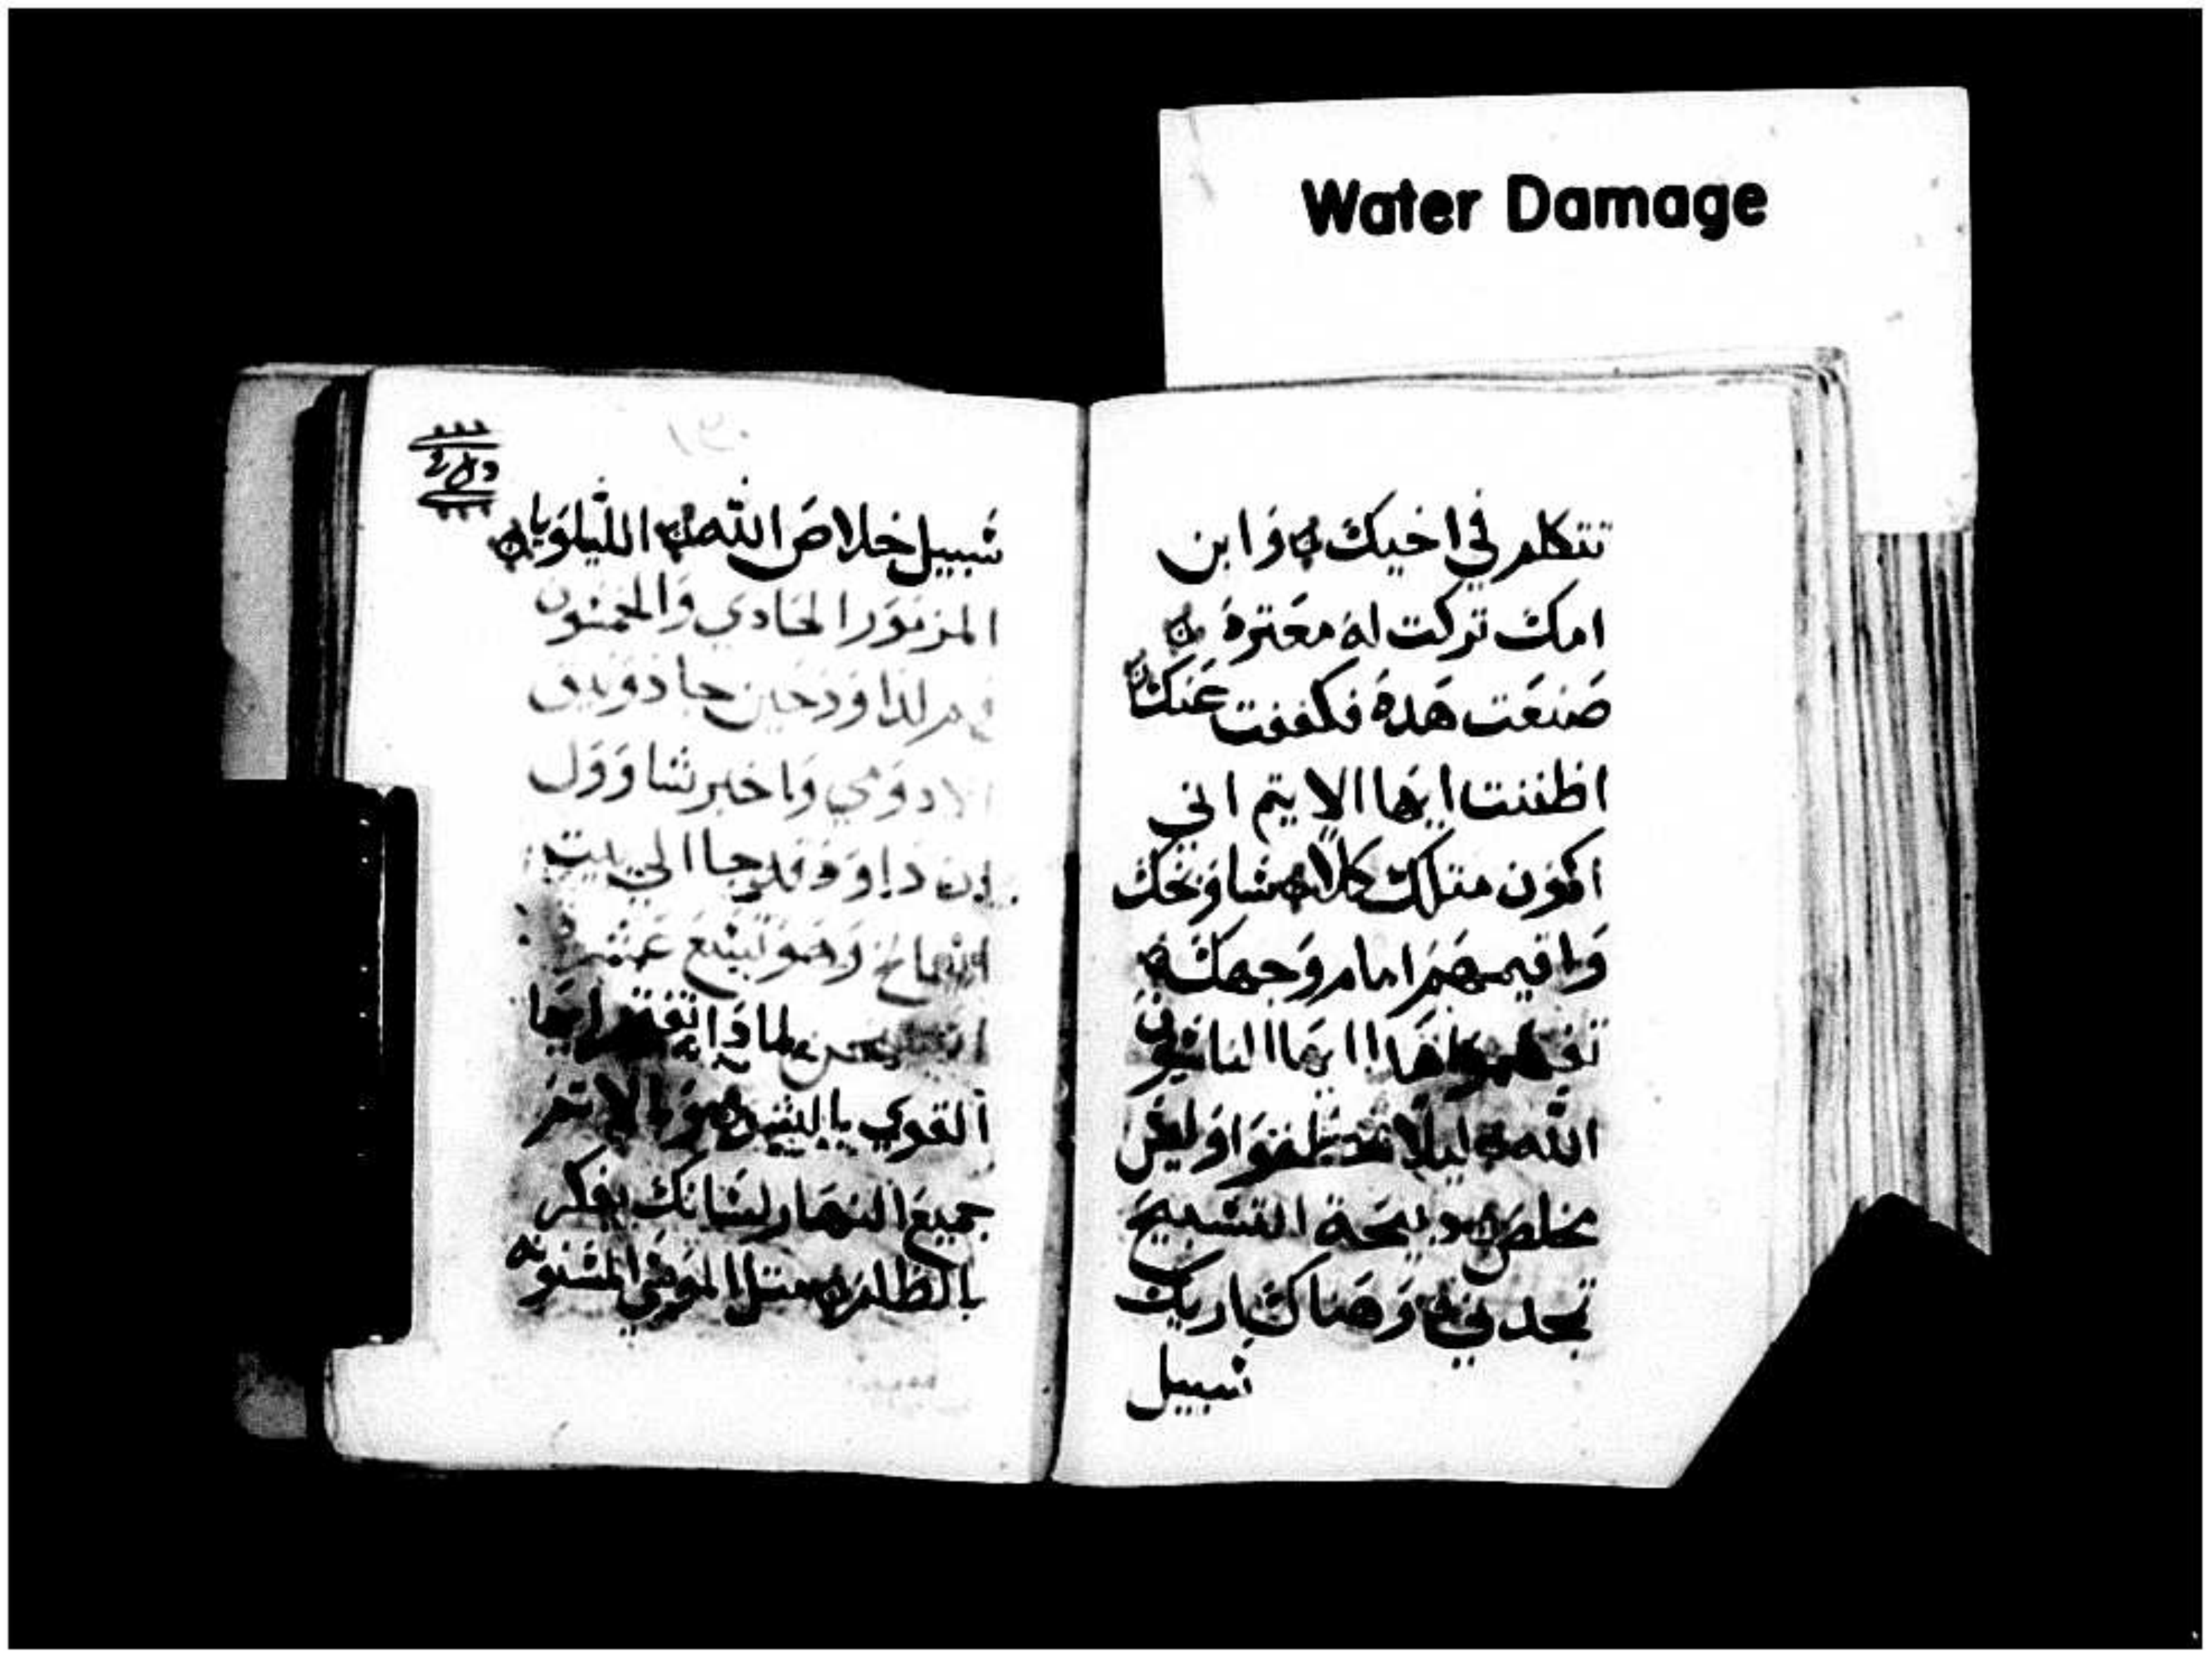 Water Damage
تتكلم في اخيك وابن
امك تركت له معترة
صَنعَت هَده فكففت عَنك
اظننت ايها الايتم اني
اكون متلك كلا شاوبخك
وَاقيمهَم امام وَجهك
هَدا ايهَا الناسون
الله ليلا
يخلص دبيحة التسبيح
تجدني وَهناك اريك
سبيل
سبيل خلاصَ الله الليلويا
المزمَور الحَادي وَالخمسون
لداوَد حين جا دوَيق
الادوَمي وَاخبر شاوَول
داوَد قد جا الي بيت
وَهَو تسع عَشرة
لمادَا ايهَا
القوي بالشر
جميع النهَار لسَانك يفكر
بالظلم متل الموَسَي المسنونه